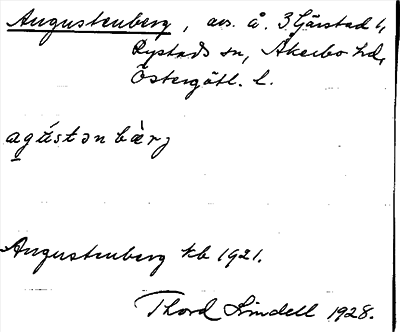 Augustenberg, avs. å. 3 Gärstad 1,
Rystads sn, Åkerbo hd,
Östergötl. l.
agústən bàrj
Augustenberg kb 1921.
Thord Lindell 1928.